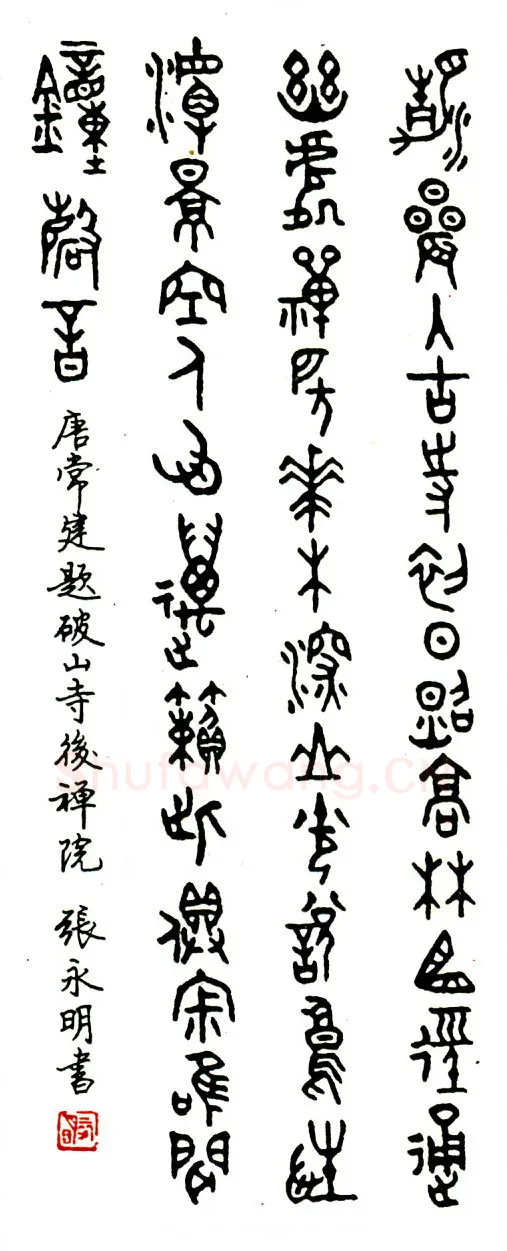 清晨入古寺初日照高林曲徑通
幽處禪房花木深山光說鳥性
潭景空人心萬籟此俱寂唯聞
鐘磬音 唐常建題破山寺後禪院 張永明書
Shufawang.CN